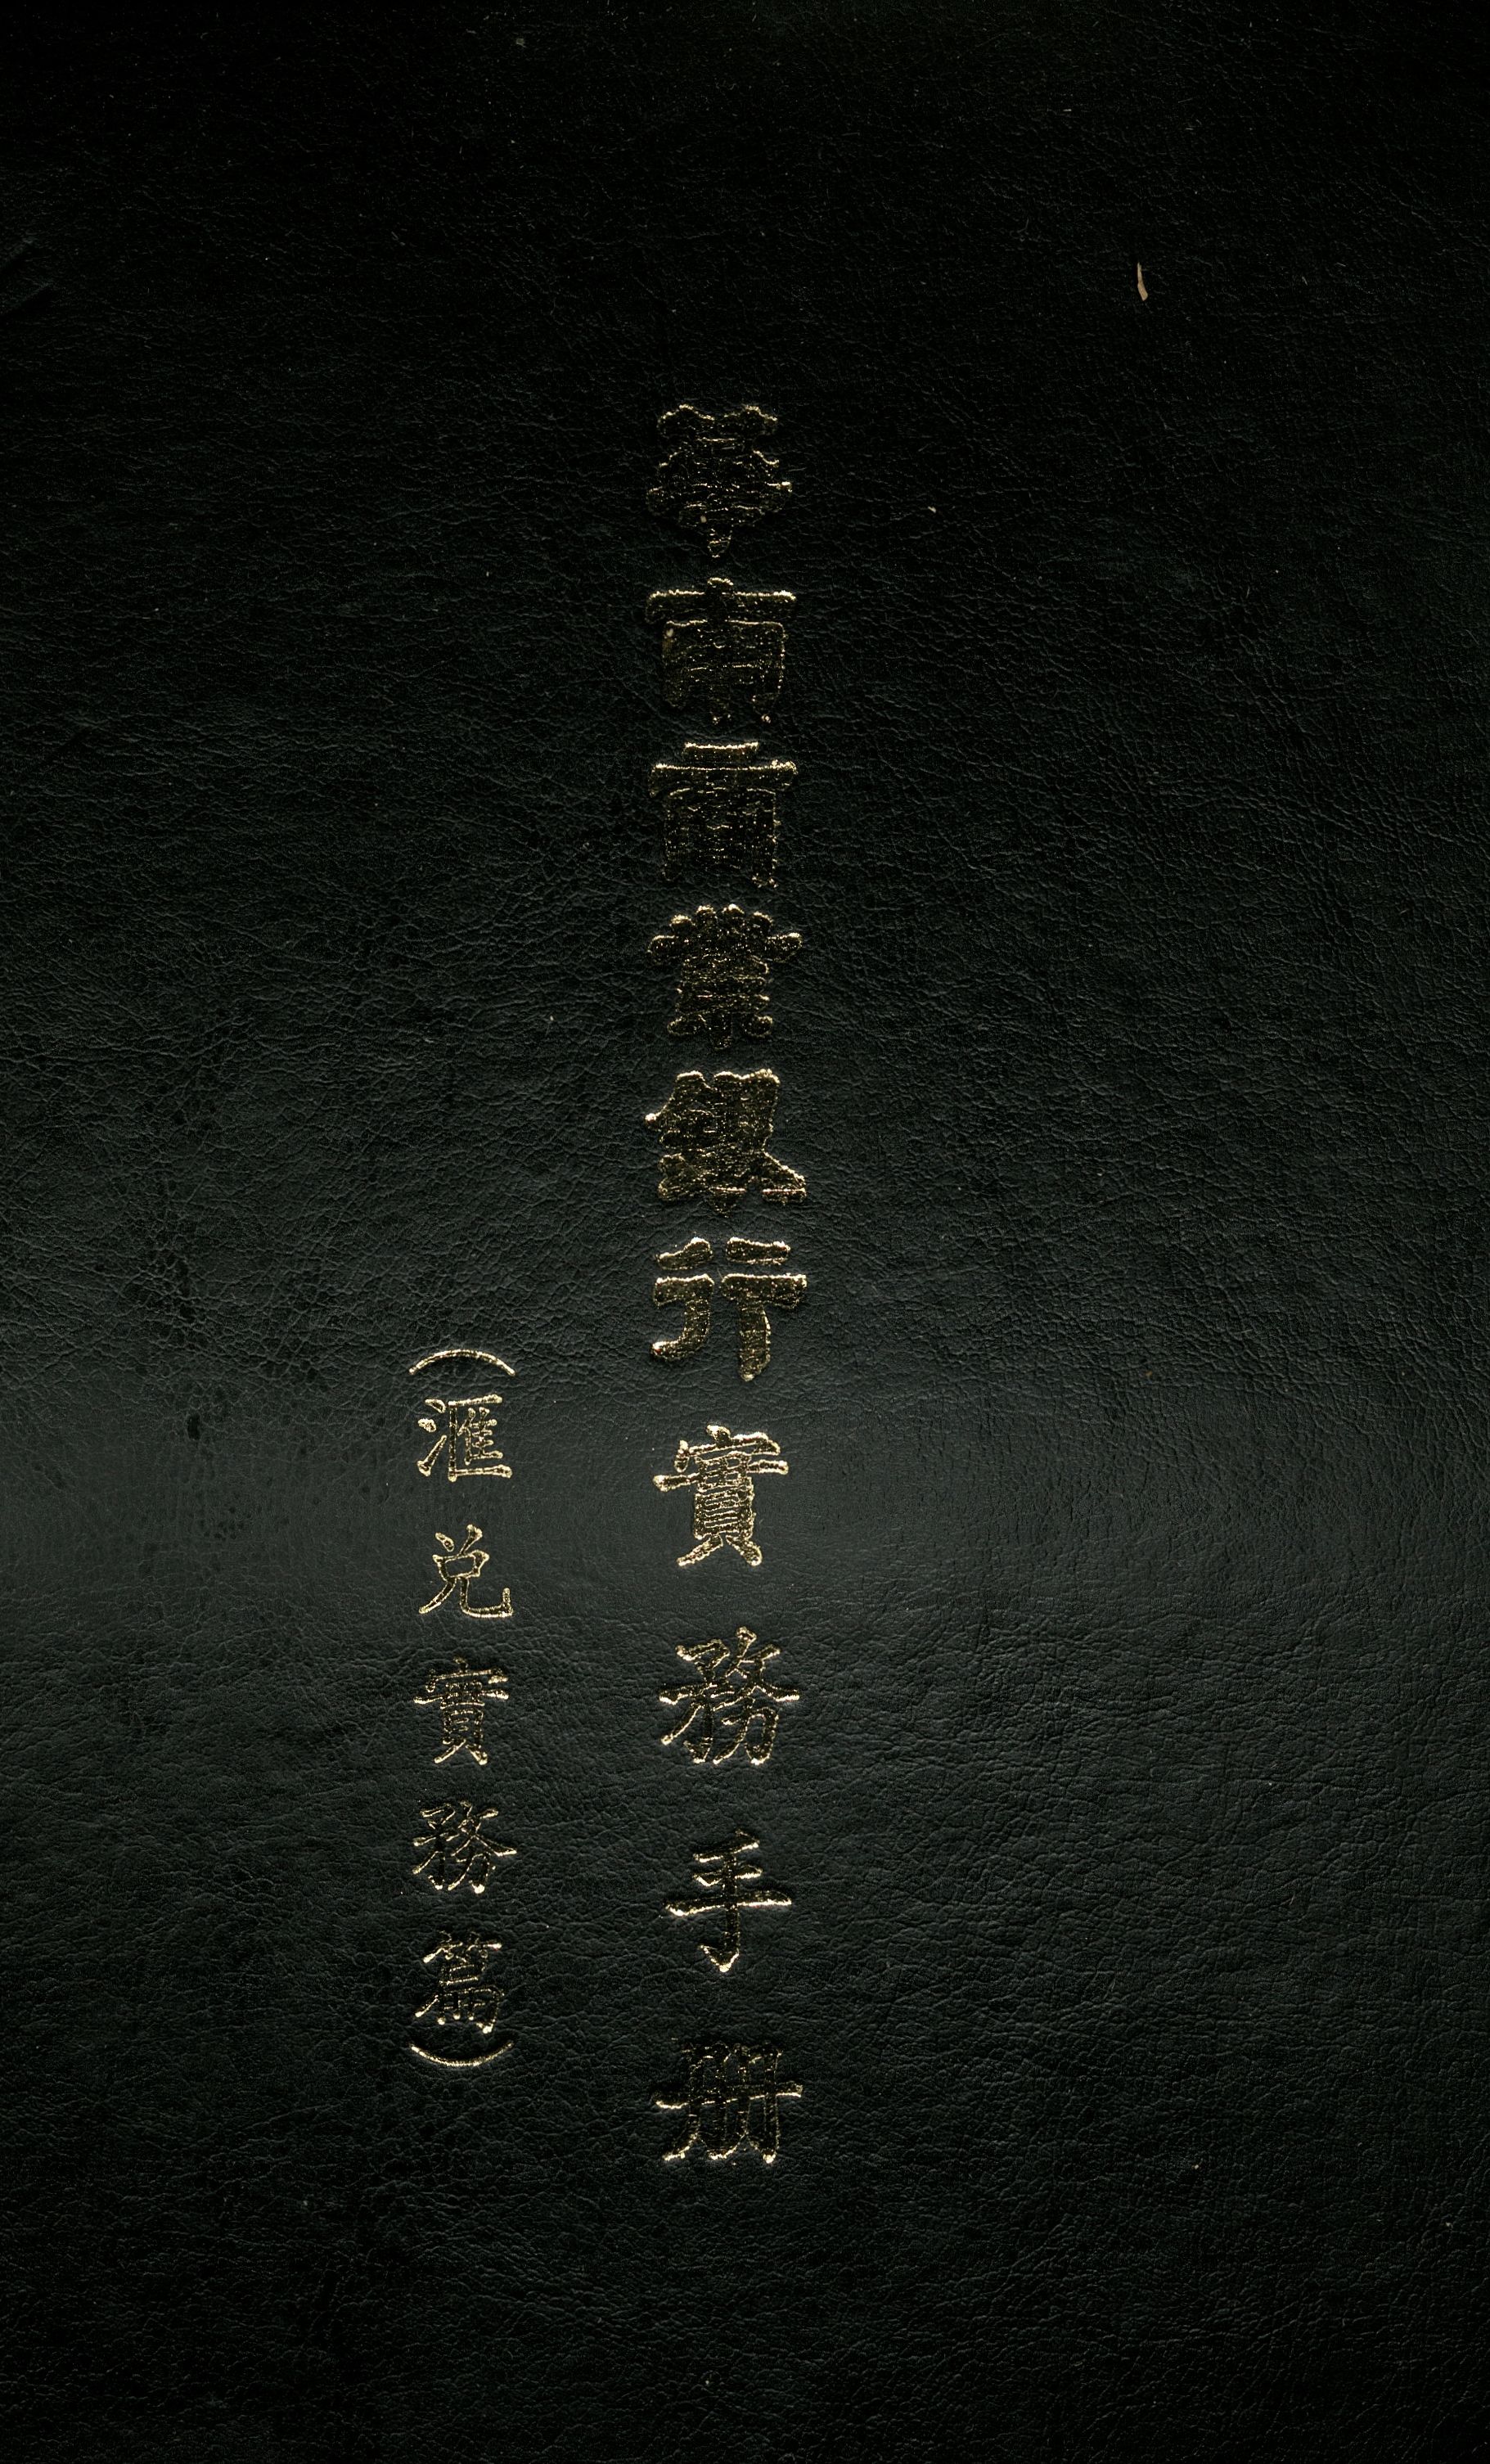 華南商業銀行實務手册
（滙兌實務篇）